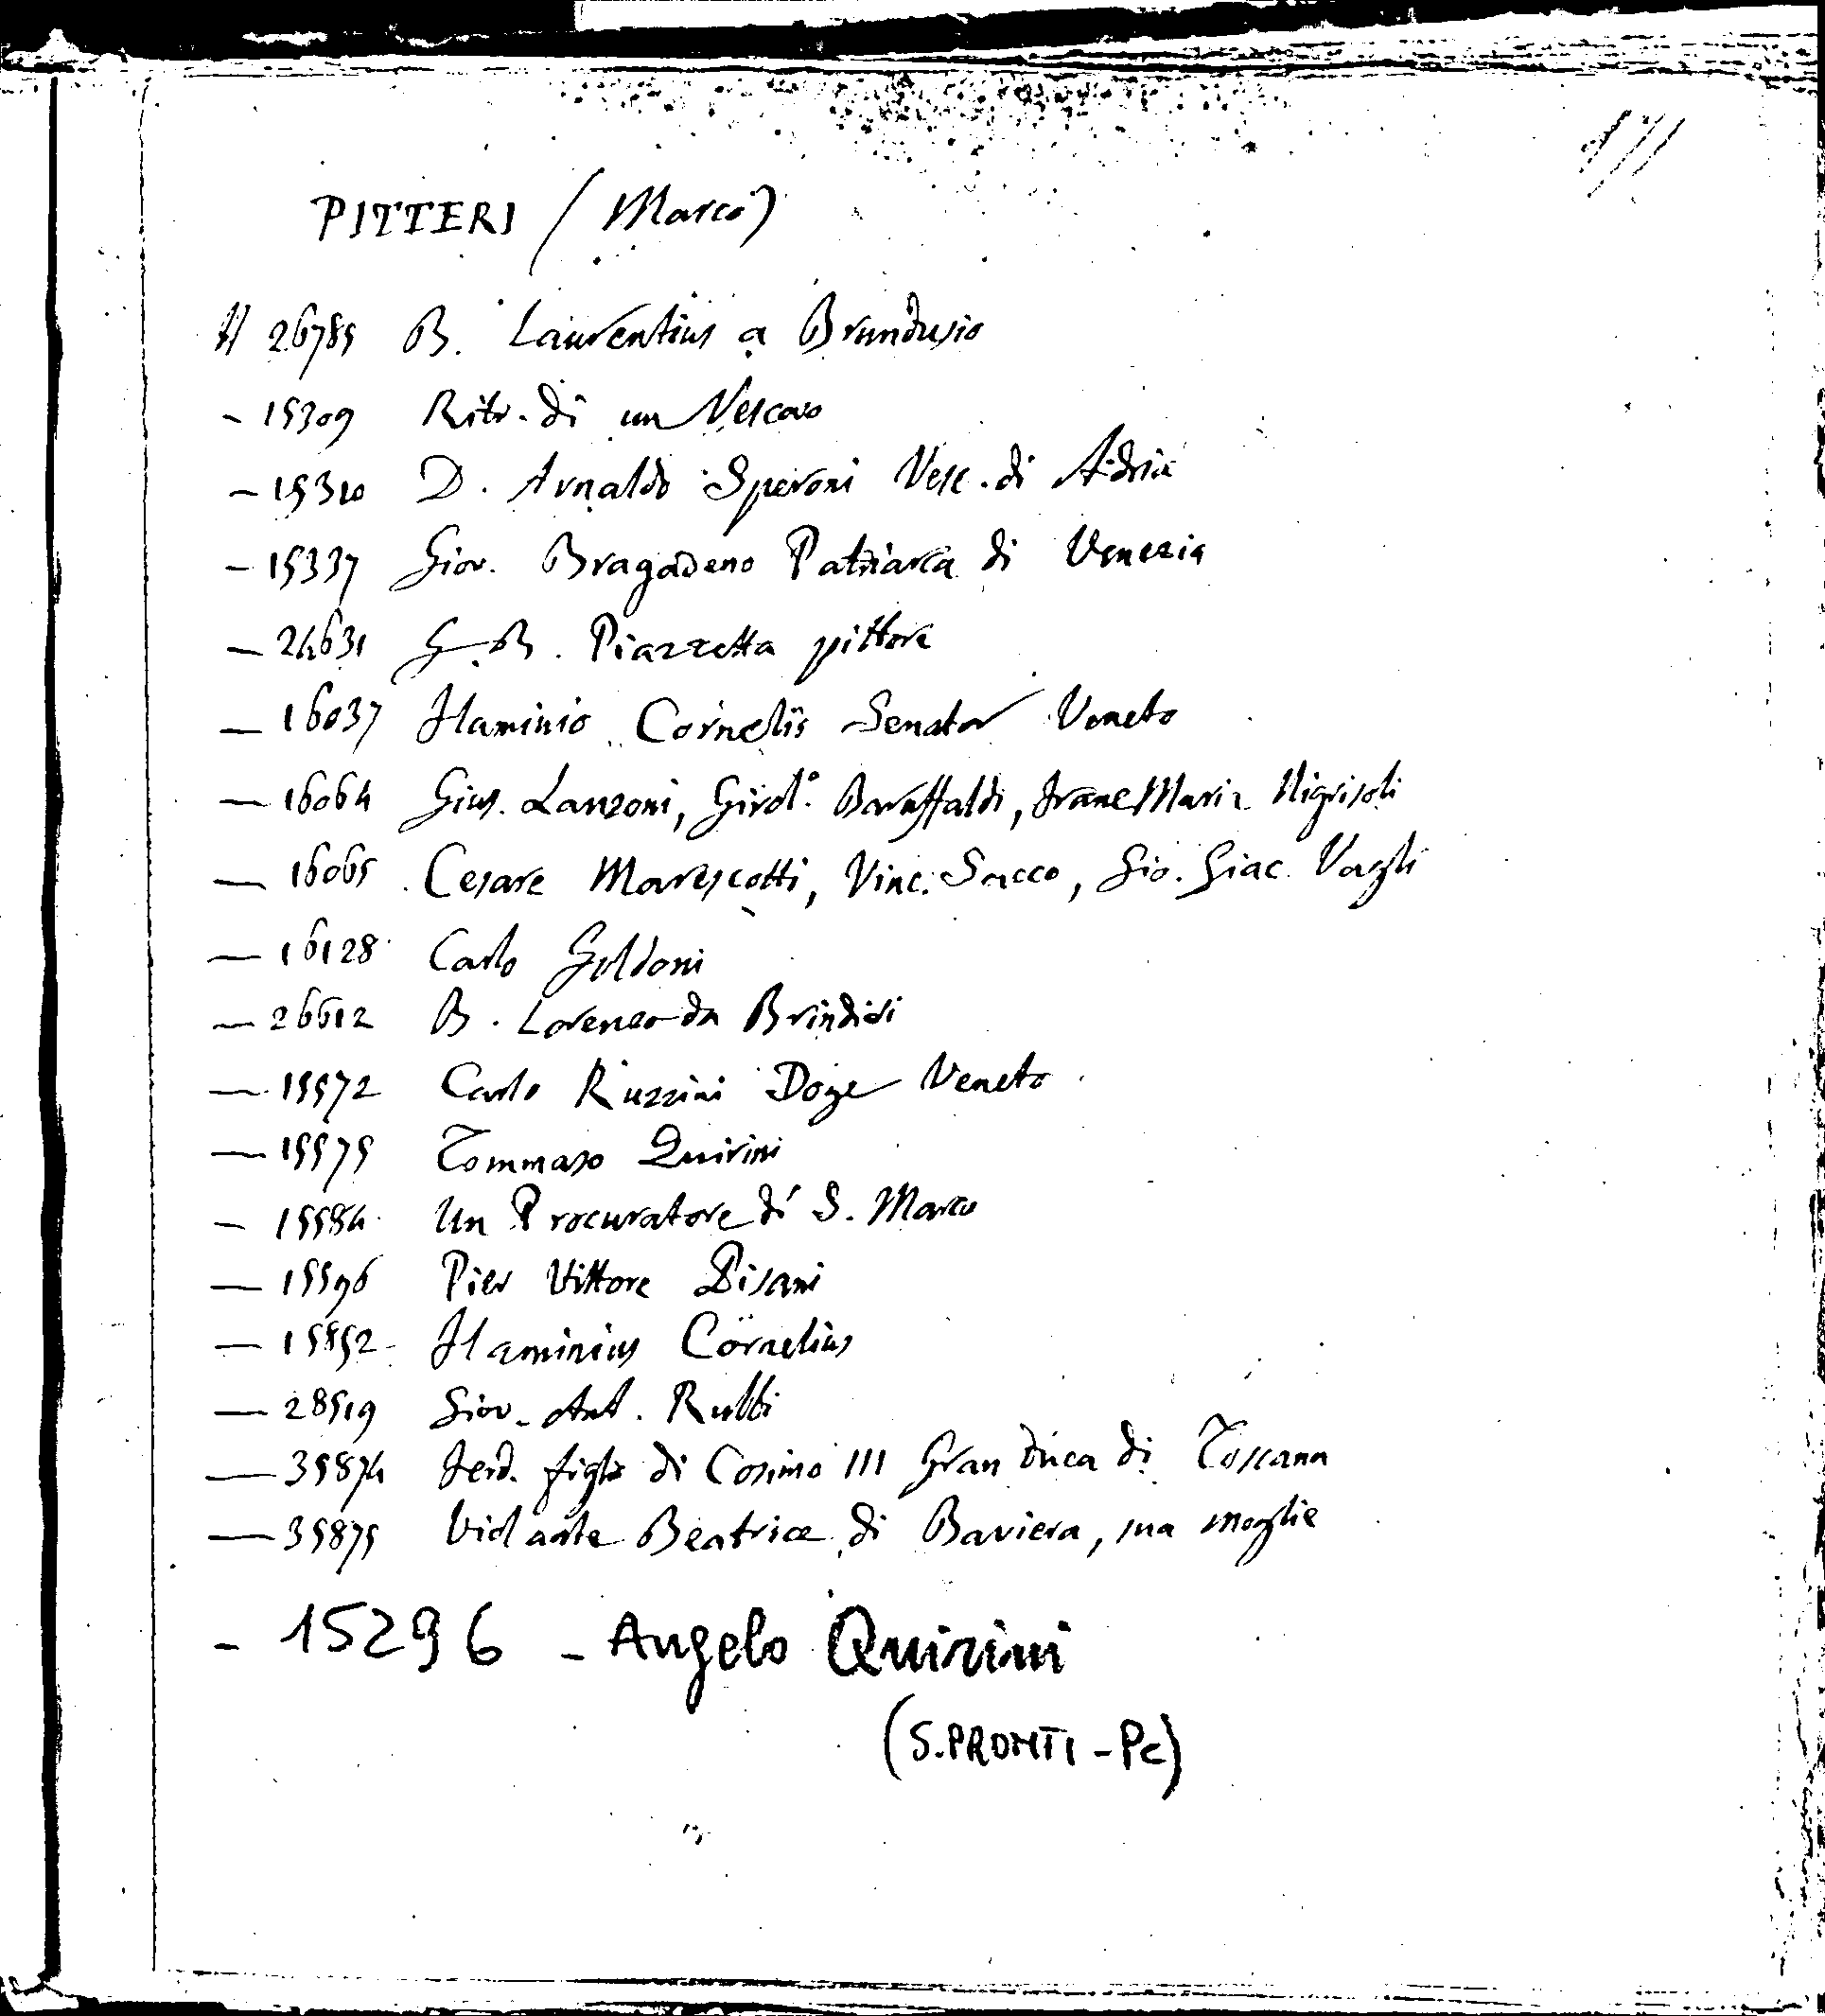 PITTERI (Marco)
26785 B. Laurentius a Brundusio
- 15309 Ritr. di un Vescovo
- 15310 D. Arnaldo Speroni Vesc. di Adria
- 15337 Giov. Bragadeno Patriarca di Venezia
- 24631 G. B. Piazzetta pittore
- 16037 Flaminio Cornelis Senator Veneto
- 16064 Gius. Lanzoni, Girol.º Baruffaldi, Franc Maria Nigrisoli
- 16065 Cesare Marescotti, Vinc. Sacco, Gio. Giac. Vagli
- 16128 Carlo Goldoni
- 26612 B. Lorenzo da Brindisi
- 15572 Carlo Ruzzini Doge Veneto
- 15575 Tommaso Quirini
- 15584 Un Procuratore di S. Marco
- 15596 Pier Vittore Pisani
- 15852 Flaminius Cornelius
- 28519 Giov. Ant. Rubbi
- 35874 Ferd. figlio di Cosimo III Gran Duca di Toscana
- 35875 Violante Beatrice di Baviera, sua moglie
- 15296 - Angelo Quirini
(S. PRONTI - Pc)